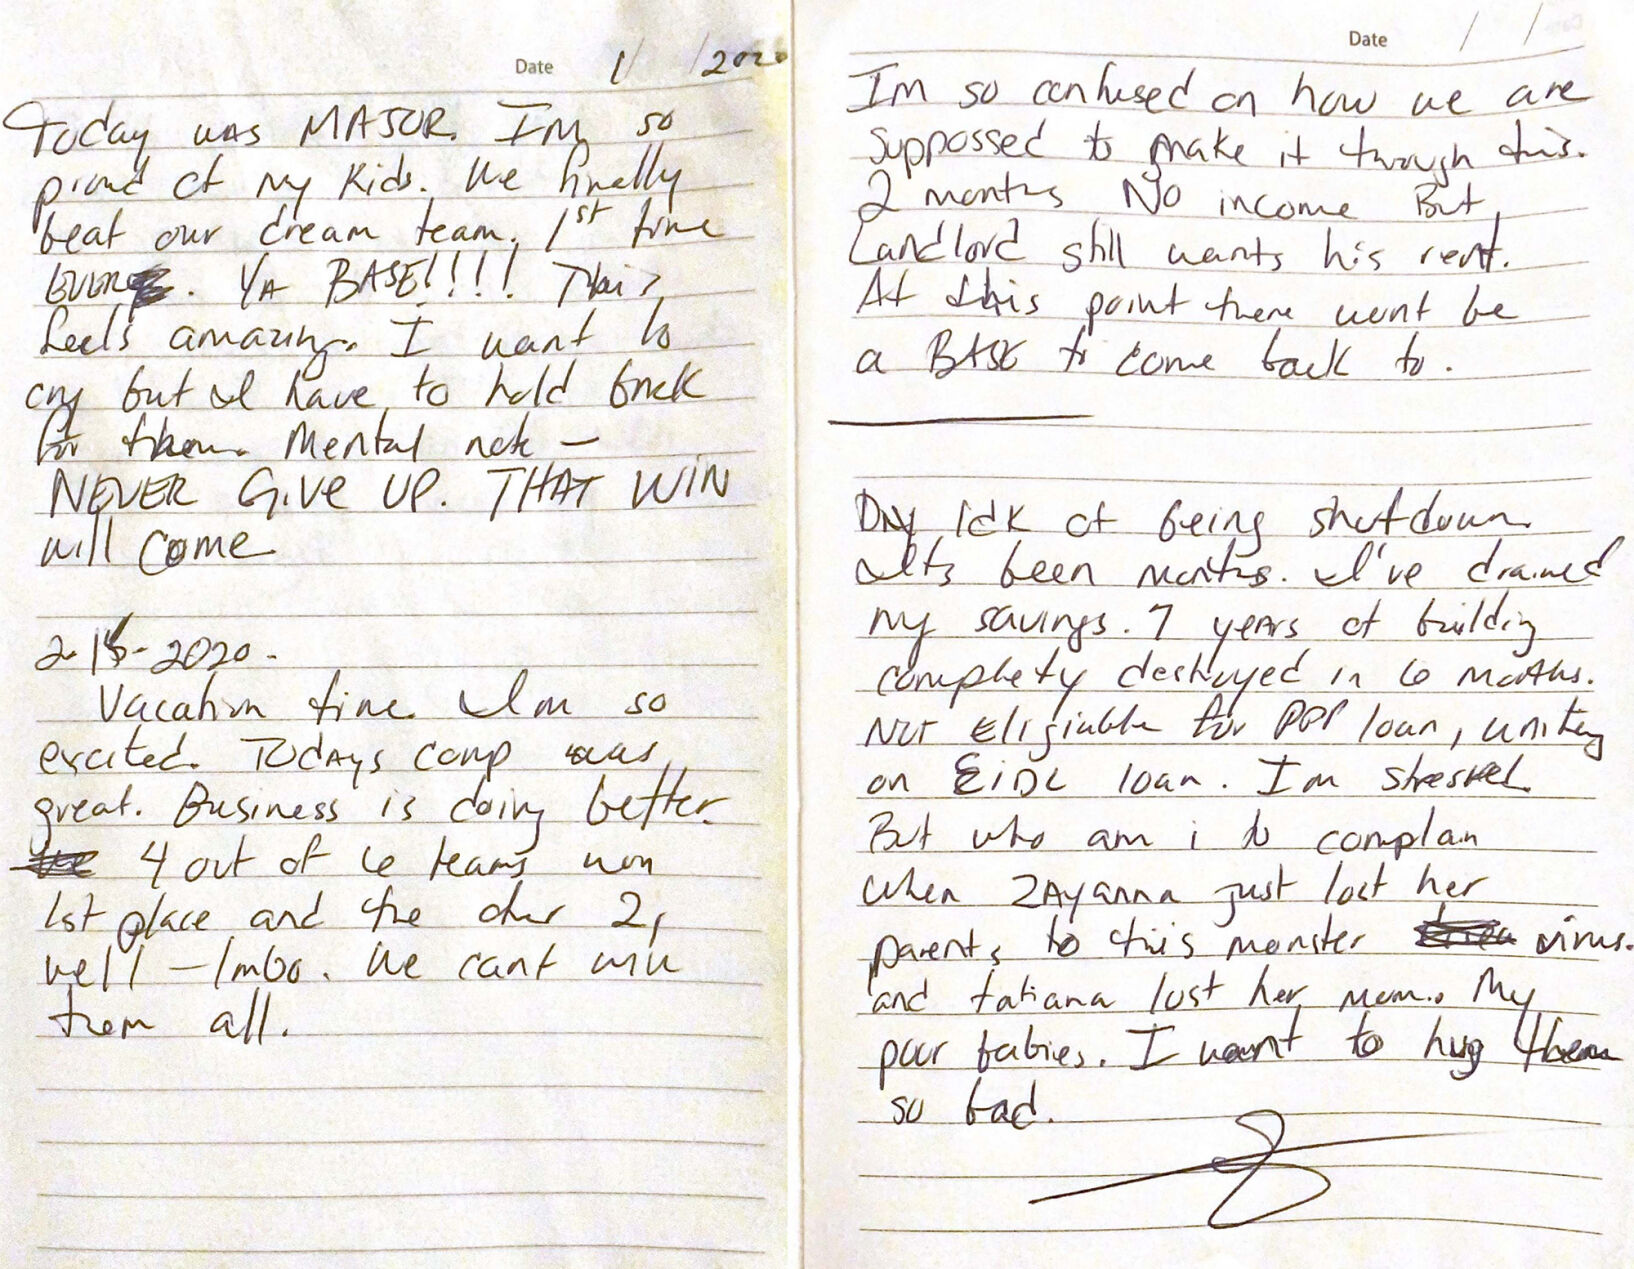 Date 1/ /2020
Today was MAJOR. Im so
proud of my kids. We finally
beat our dream team. 1st time
EVER. YA BASE!!!! This
feels amazing. I want to
cry but I have to hold back
for them. Mental note —
NEVER GIVE UP. THAT WIN
will come
2-15-2020.
Vacation time Im so
excited. Todays comp was
great. Business is doing better.
4 out of 6 teams won
1st place and the other 2,
well - lmbo. We cant win
them all.
Date / /
Im so confused on how we are
suppossed to make it through this.
2 months No income But
Landlord still wants his rent.
At this point there wont be
a BASE to come back to.
Day Idk of being shutdown.
Its been months. I've drained
my savings. 7 years of building
complety destroyed in 6 months.
Not Eligiable for PPP loan, waiting
on EIDL loan. Im stressed.
But who am i to complain
when ZAyanna just lost her
parents to this monster virus.
and tatiana lost her mom. My
poor babies. I want to hug them
so bad.